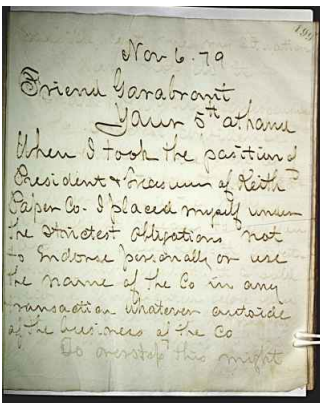 199
Nov 6. 79
Friend Garabrant
Your 5th at hand
When I took the position of
President & Treasurer of Keith
Paper Co. I placed myself under
the strictest obligations not
to Endorse personally or use
the name of the Co in any
transaction whatever outside
of the business of the Co
To overstep this might